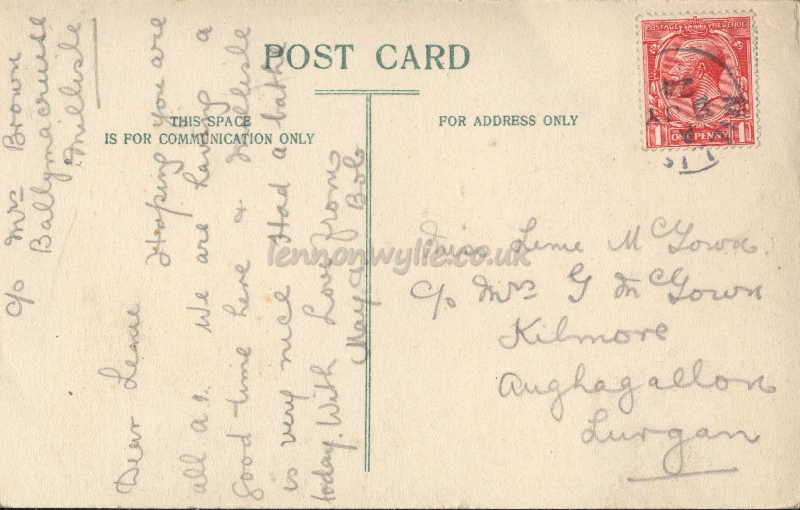 POST CARD
THIS SPACE
IS FOR COMMUNICATION ONLY
FOR ADDRESS ONLY
POSTAGE REVENUE
1 ONE PENNY 1
c/o Mrs Brown
Ballymacruise
Millisle
Dear Leme
Hoping you are
all A1. We are having a
good time here & Millisle
is very nice Had a bath
today. With Love from
May & Bob
Miss Leme McGown
c/o Mrs G McGown
Kilmore
Aughagallon
Lurgan
lennonwylie.co.uk